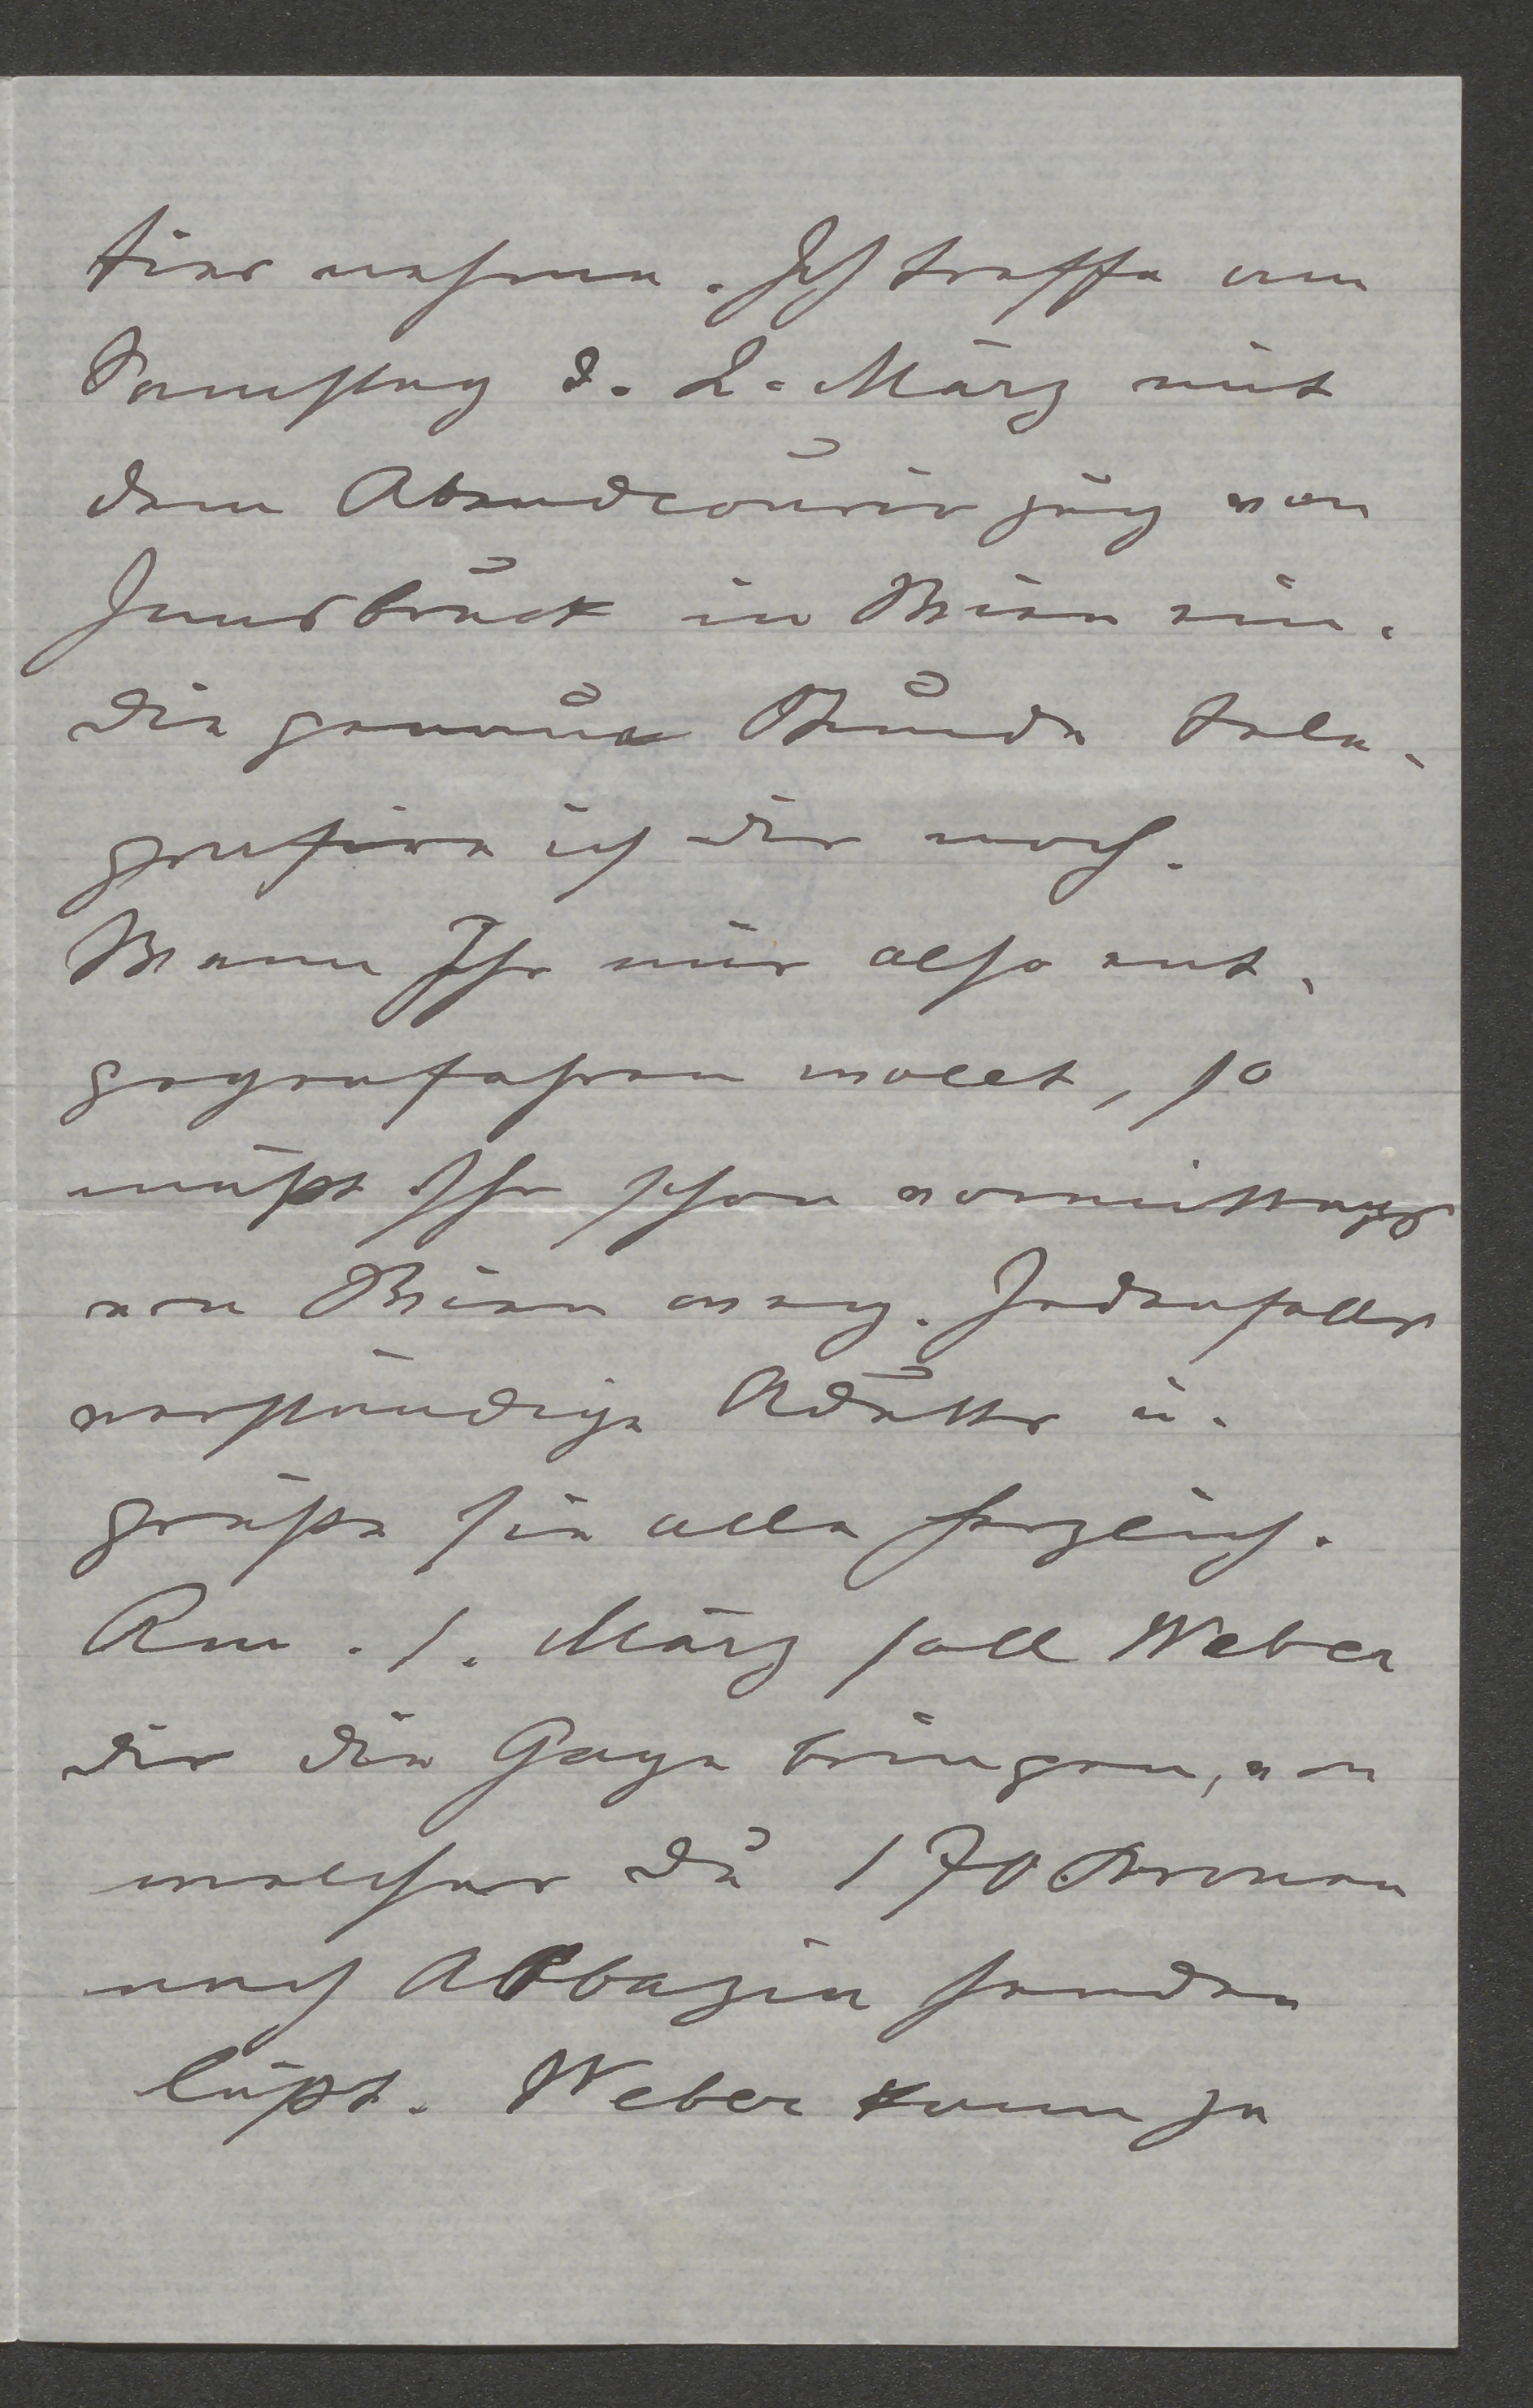 tier nehmen. Ich treffe am
Samstag d. 2. März mit
dem Abendcourirzug von
Innsbruck in Wien ein.
Die genaue Stunde tele-
grafire ich dir noch.
Wenn Ihr mir also ent-
gegenfahren wollt, so
müßt Ihr schon vormittags
von Wien weg. Jedenfalls
verständige
grüße sie alle herzlich.
Am. 1. März soll Weber
dir die Gage bringen, von
welcher du 170 Kronen
nach Abbazia senden
läßt. Weber kann ja